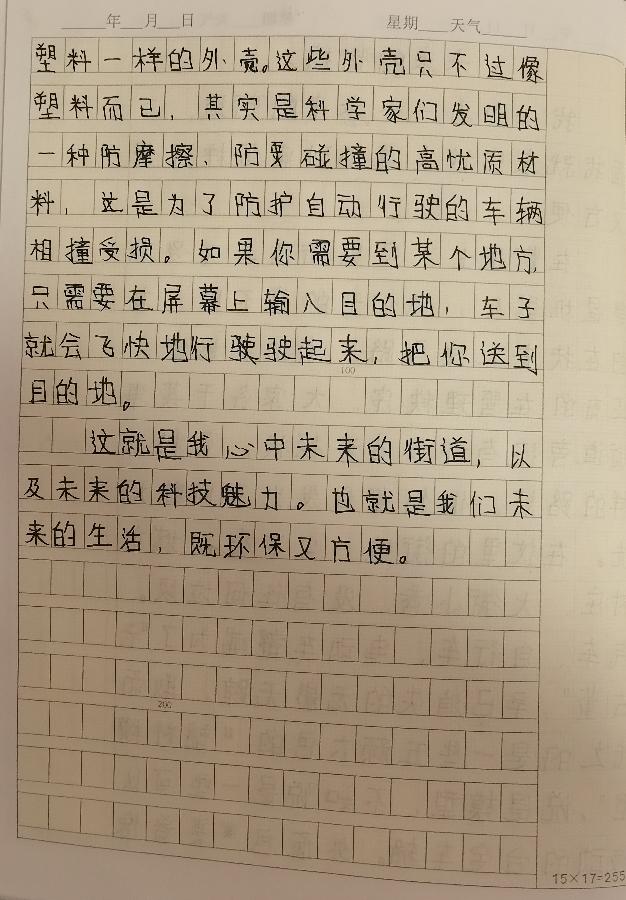 年 月 日 星期 天气
塑料一样的外壳。这些外壳只不过像
塑料而已，其实是科学家们发明的
一种防摩擦、防要碰撞的高忧质材
料，这是为了防护自动行驶的车辆
相撞受损。如果你需要到某个地方，
只需要在屏幕上输入目的地，车子
就会飞快地行驶驶起来，把你送到
100
目的地。
这就是我心中未来的街道，以
及未来的科技魅力。也就是我们未
来的生活，既环保又方便。
200
15×17=255